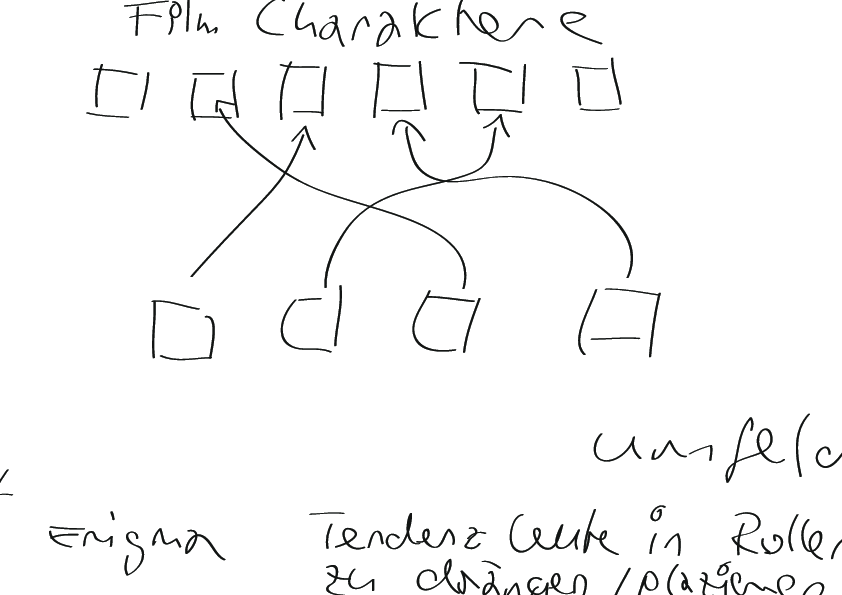 Film Charaktere
umfeld
Enigma
Tendenz Leute in Rollen
zu drängen / plazieren